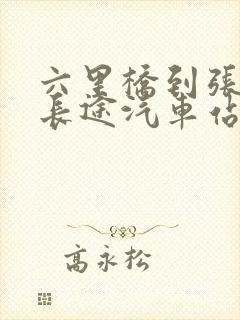 六里橋到張
長途汽車佔
高永松